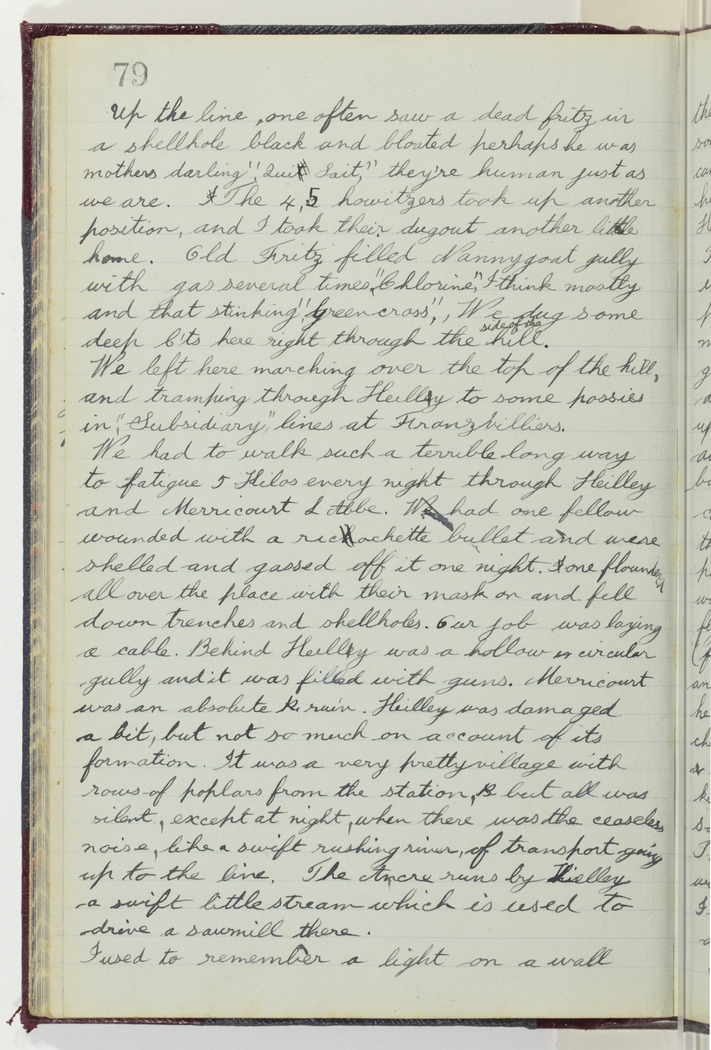 79
Up the line, one often saw a dead fritz in
a shellhole black and bloated perhaps he was
mothers darling", "Sait," they're human just as
we are. The 4,5 howitzers took up another
position, and I took their dugout another little
home. Old Fritz filled Nannygoat gully
with gas several times, "Chlorine," I think mostly
and that stinking "green cross", We dug some
deep C'ts here right through the side of the hill.
We left here marching over the top of the hill,
and tramping through Heilly to some possies
in "Subsidiary" lines at Franzvilliers.
We had to walk such a terrible long way
to fatigue 5 Kilos every night through Heilley
and Merricourt L Abbe. We had one fellow
wounded with a ricochette bullet and were
shelled and gassed off it one night. one floundered
all over the place with their mask on and fell
down trenches and shellholes. Our job was laying
a cable. Behind Heilly was a hollow circular
gully and it was filled with guns. Merricourt
was an absolute ruin. Heilley was damaged
a bit, but not so much on account of its
formation. It was a very pretty village with
rows of poplars from the station, but all was
silent, except at night, when there was the ceaseless
noise, like a swift rushing river, of transport going
up to the line. The Ancre runs by Heilley
a swift little stream which is used to
drive a sawmill there.
I used to remember a light on a wall